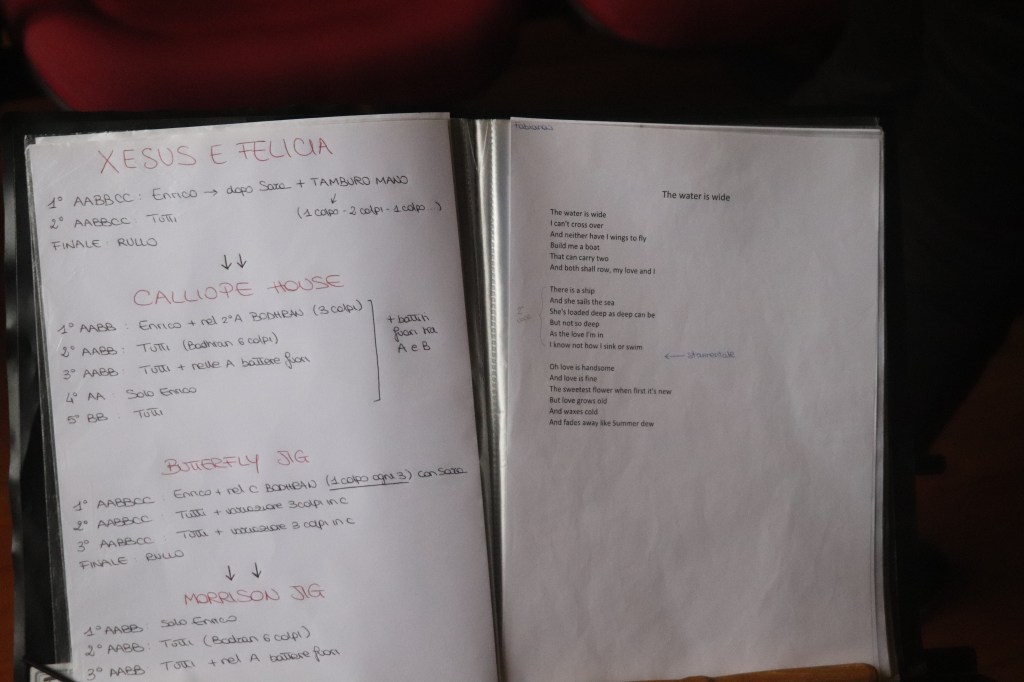 XESUS E FELICIA
1° AABBCC : Enrico → dopo Sara + TAMBURO MANO
2° AABBCC : Tutti (1 colpo - 2 colpi - 1 colpo...)
FINALE : RULLO
↓↓
CALLIOPE HOUSE
1° AABB : Enrico + nel 2° A BODHRAN (3 colpi)
2° AABB : Tutti (Bodhran 6 colpi)
3° AABB : Tutti + nelle A battere fuori
4° AA : Solo Enrico
5° BB : Tutti
+ batteri
fuori tra
A e B
BUTTERFLY JIG
1° AABBCC : Enrico + nel C BODHRAN (1 colpo ogni 3) con Sara
2° AABBCC : Tutti + variazione 3 colpi in C
3° AABBCC : Tutti + variazione 3 colpi in C
FINALE : RULLO
↓ ↓
MORRISON JIG
1° AABB : Solo Enrico
2° AABB : Tutti (Bodran 6 colpi)
3° AABB : Tutti + nel A battere fuori
The water is wide
The water is wide
I can't cross over
And neither have I wings to fly
Build me a boat
That can carry two
And both shall row, my love and I
There is a ship
And she sails the sea
She's loaded deep as deep can be
But not so deep
As the love I'm in
I know not how I sink or swim
← strumentale
Oh love is handsome
And love is fine
The sweetest flower when first it's new
But love grows old
And waxes cold
And fades away like Summer dew